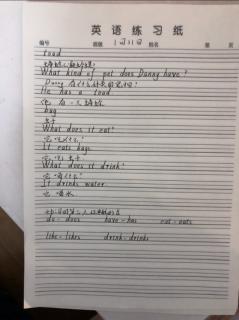 英语练习纸
编号 班级 1月11日 姓名
toad
What kind of pet does Danny have?
Danny 有什么
He has a toad
他 有 一
bug
虫子
What does it eat?
它 吃什么?
It eats bugs
它 吃 虫子
What does it drink?
它 喝什么?
It drinks water
它 喝水
do - does have - has eat - eats
like - likes drink - drinks